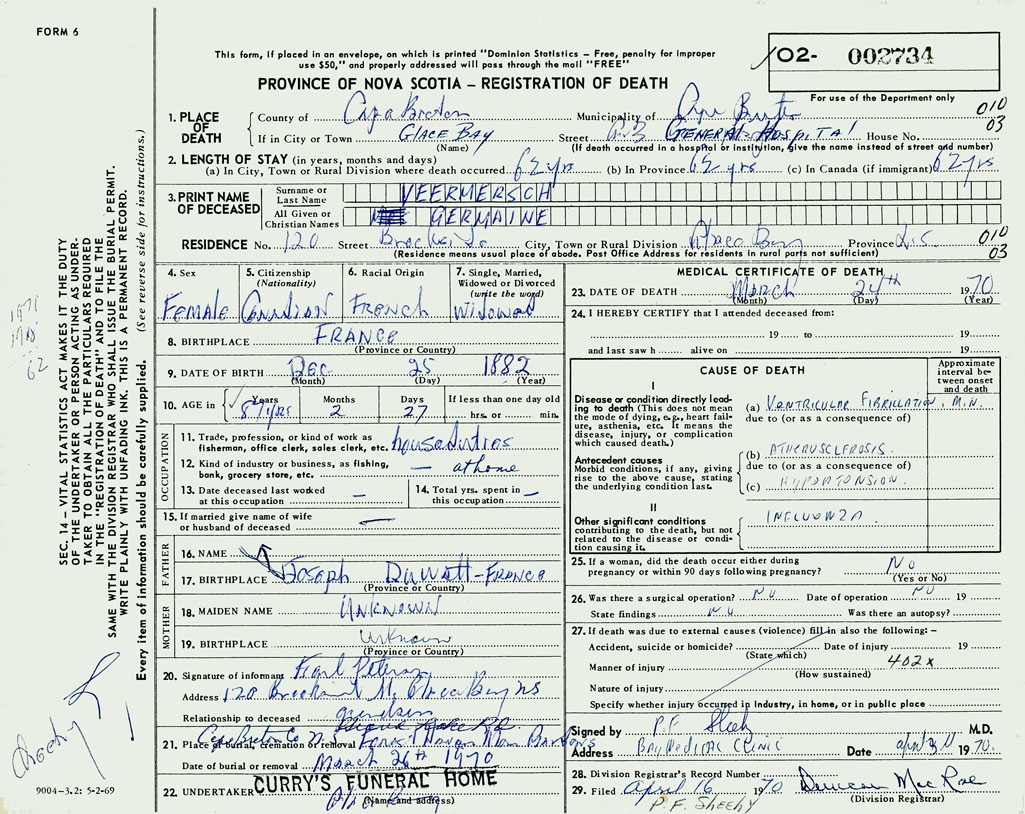 FORM 6
This form, if placed in an envelope, on which is printed "Dominion Statistics – Free, penalty for improper
use $50," and properly addressed will pass through the mail "FREE"
02- 002734
PROVINCE OF NOVA SCOTIA – REGISTRATION OF DEATH
For use of the Department only
1. PLACE OF DEATH
County of Cape Breton Municipality of Cape Breton 010
If in City or Town GLACE BAY Street GENERAL HOSPITAL House No. 03
(Name) (If death occurred in a hospital or institution, give the name instead of street and number)
2. LENGTH OF STAY (in years, months and days)
(a) In City, Town or Rural Division where death occurred 62 yrs (b) In Province 62 yrs (c) In Canada (if immigrant) 62 yrs
3. PRINT NAME OF DECEASED
Surname or Last Name VEERMERSCH
All Given or Christian Names GERMAINE
RESIDENCE No. 120 Street City, Town or Rural Division Glace Bay Province N.S 010
(Residence means usual place of abode. Post Office Address for residents in rural parts not sufficient) 03
4. Sex Female
5. Citizenship (Nationality) Canadian
6. Racial Origin French
7. Single, Married, Widowed or Divorced (write the word) Widowed
8. BIRTHPLACE FRANCE
(Province or Country)
9. DATE OF BIRTH DEC 25 1882
(Month) (Day) (Year)
10. AGE in Years Months Days If less than one day old
87 yrs 2 27 hrs. or min.
OCCUPATION
11. Trade, profession, or kind of work as fisherman, office clerk, sales clerk, etc. houseduties
12. Kind of industry or business, as fishing, bank, grocery store, etc. — at home
13. Date deceased last worked at this occupation —
14. Total yrs. spent in this occupation —
15. If married give name of wife or husband of deceased —
FATHER
16. NAME
17. BIRTHPLACE Joseph -France
(Province or Country)
MOTHER
18. MAIDEN NAME Unknown
19. BIRTHPLACE Unknown
(Province or Country)
20. Signature of informant Karl Peterson
Address 120 St. Glace Bay NS
Relationship to deceased grandson
Cape Breton Co N.S.
21. Place of burial, cremation or removal
Date of burial or removal March 26th 1970
22. UNDERTAKER CURRY'S FUNERAL HOME
Glace Bay
(Name and address)
MEDICAL CERTIFICATE OF DEATH
23. DATE OF DEATH March 24th 1970
(Month) (Day) (Year)
24. I HEREBY CERTIFY that I attended deceased from:
19 to 19
and last saw h alive on 19
CAUSE OF DEATH
Approximate interval between onset and death
I
Disease or condition directly leading to death (This does not mean the mode of dying, e.g., heart failure, asthenia, etc. It means the disease, injury, or complication which caused death.)
(a) VENTRICULAR FIBRILLATION, MIN
due to (or as a consequence of)
Antecedent causes
Morbid conditions, if any, giving rise to the above cause, stating the underlying condition last.
(b) ATHERUSCLEROSIS
due to (or as a consequence of)
(c) HYPERTENSION
II
Other significant conditions contributing to the death, but not related to the disease or condition causing it.
INFLUENZA
25. If a woman, did the death occur either during pregnancy or within 90 days following pregnancy? NO
(Yes or No)
26. Was there a surgical operation? NO Date of operation NO 19
State findings NO Was there an autopsy?
27. If death was due to external causes (violence) fill in also the following:–
Accident, suicide or homicide? Date of injury 19
(State which)
Manner of injury 402x
(How sustained)
Nature of injury
Specify whether injury occurred in Industry, in home, or in public place
Signed by P.F. Sheehy M.D.
Address BAY MEDICAL CLINIC Date April 1970
28. Division Registrar's Record Number
29. Filed April 16 1970 Duncan MacRae
P.F. SHEEHY (Division Registrar)
SEC. 14 – VITAL STATISTICS ACT MAKES IT THE DUTY
OF THE UNDERTAKER OR PERSON ACTING AS UNDER-
TAKER TO OBTAIN ALL THE PARTICULARS REQUIRED
IN THE "REGISTRATION OF DEATH" AND TO FILE THE
SAME WITH THE DIVISION REGISTRAR WHO SHALL ISSUE THE BURIAL PERMIT.
WRITE PLAINLY WITH UNFADING INK. THIS IS A PERMANENT RECORD.
Every item of information should be carefully supplied. (See reverse side for instructions.)
62
9004–3.2: 5-2-69